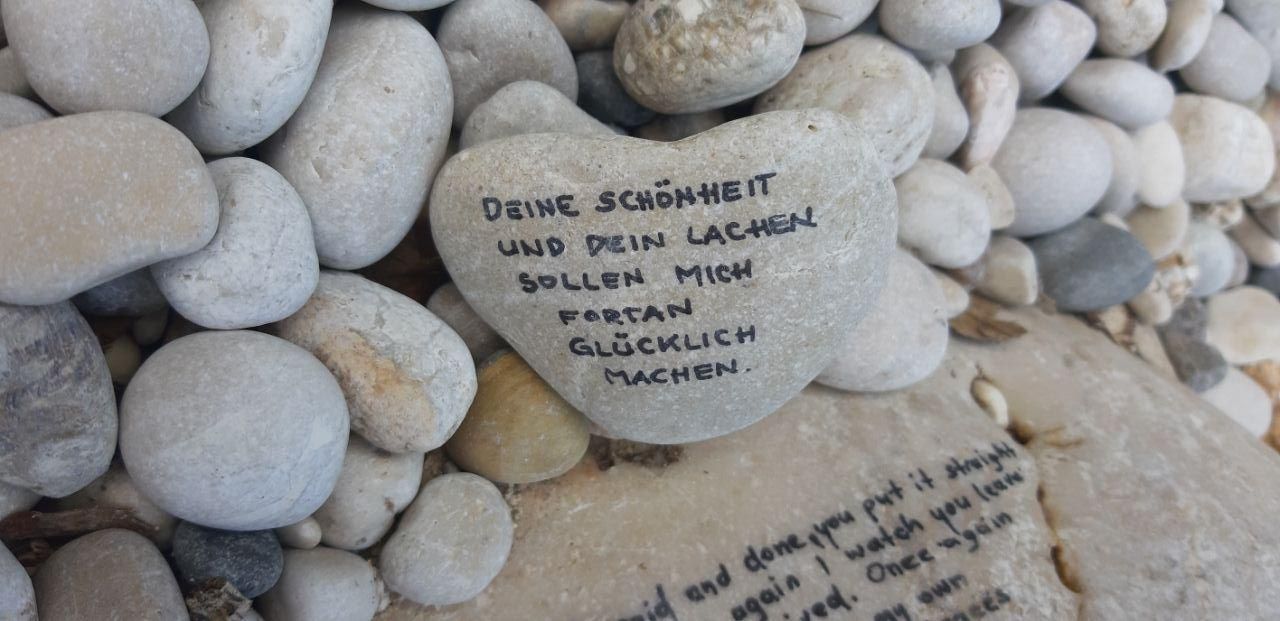 DEINE SCHÖNHEIT
UND DEIN LACHEN
SOLLEN MICH
FORTAN
GLÜCKLICH
MACHEN.
and done, you put it straight
again I watch you leave
Once again
my own